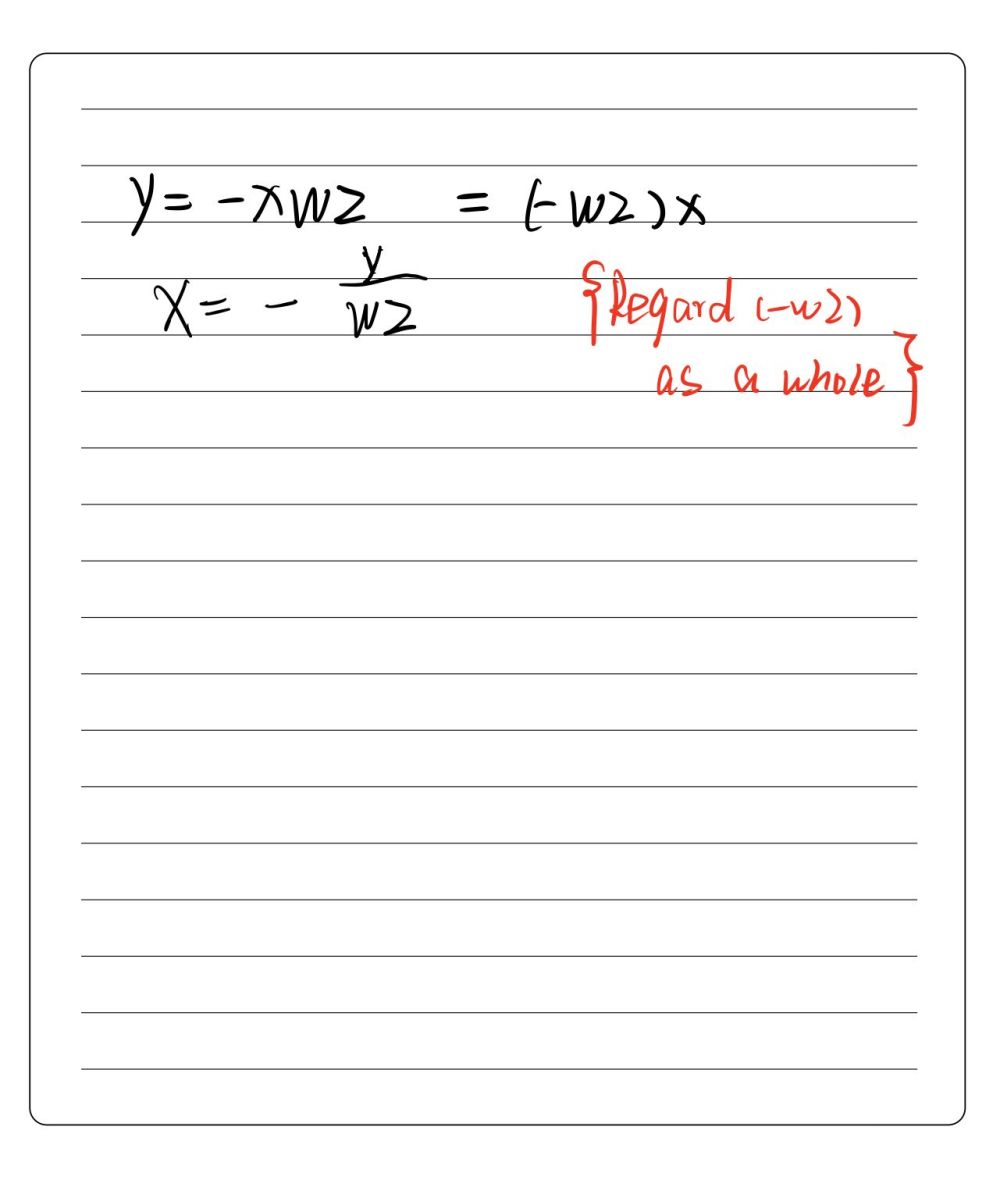 y = -xwz = (-wz)x
x = - y/wz
{Regard (-wz)
as a whole}